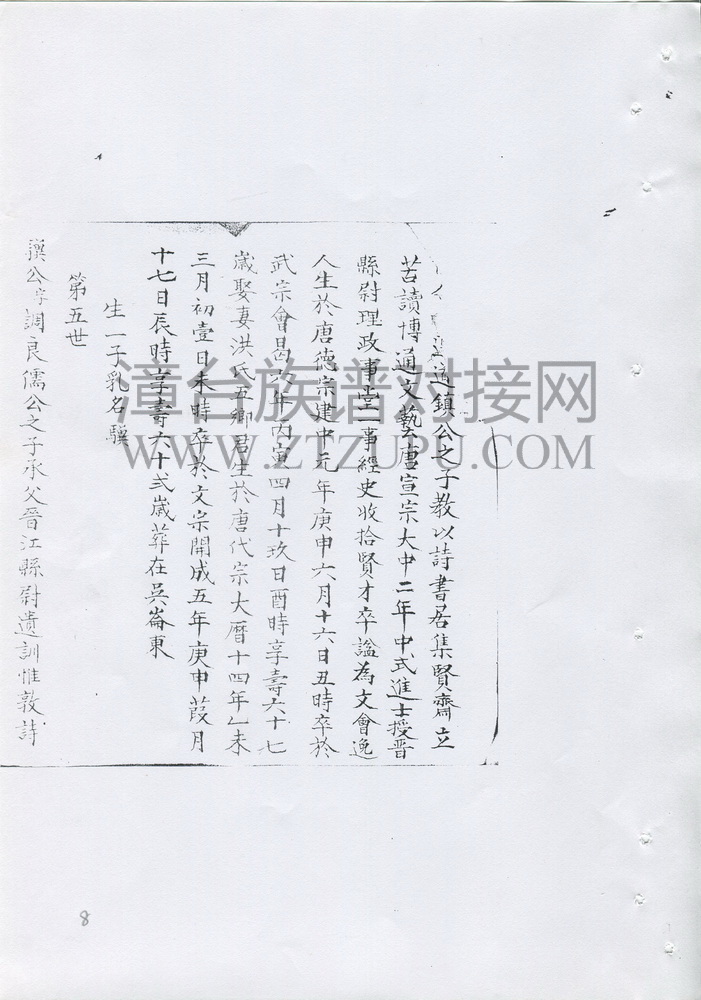 進鎮公之子教以詩書居集賢齋立
苦讀博通文藝唐宣宗大中二年中式進士授晉
縣尉理政事堂一事經史收拾賢才卒謚為文會逸
人生於唐德宗建中元年庚申六月十六日丑時卒於
武宗會昌六年丙寅四月十玖日酉時享壽六十七
歲娶妻洪氏五卿君生於唐代宗大曆十四年乙未
三月初壹日未時卒於文宗開成五年庚申葭月
十七日辰時享壽六十弍歲葬在吳崙東
生一子乳名驥
第五世
公字調良儒公之子承父晉江縣尉遺訓惟敦詩
漳台族谱对接网
WWW.ZTZUPU.COM
8